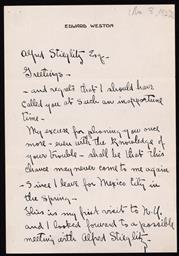 EDWARD WESTON
Alfred Stieglitz Esq -
Greetings -
- and regrets that I should have
called you at such an inopportune
time -
My excuse for phoning you once
more - even with the knowledge of
your trouble - shall be that this
chance may never come to me again
- Since I leave for Mexico City in
the Spring -
This is my first visit to N.Y.
and I looked forward to a possible
meeting with Alfred Stieglitz -